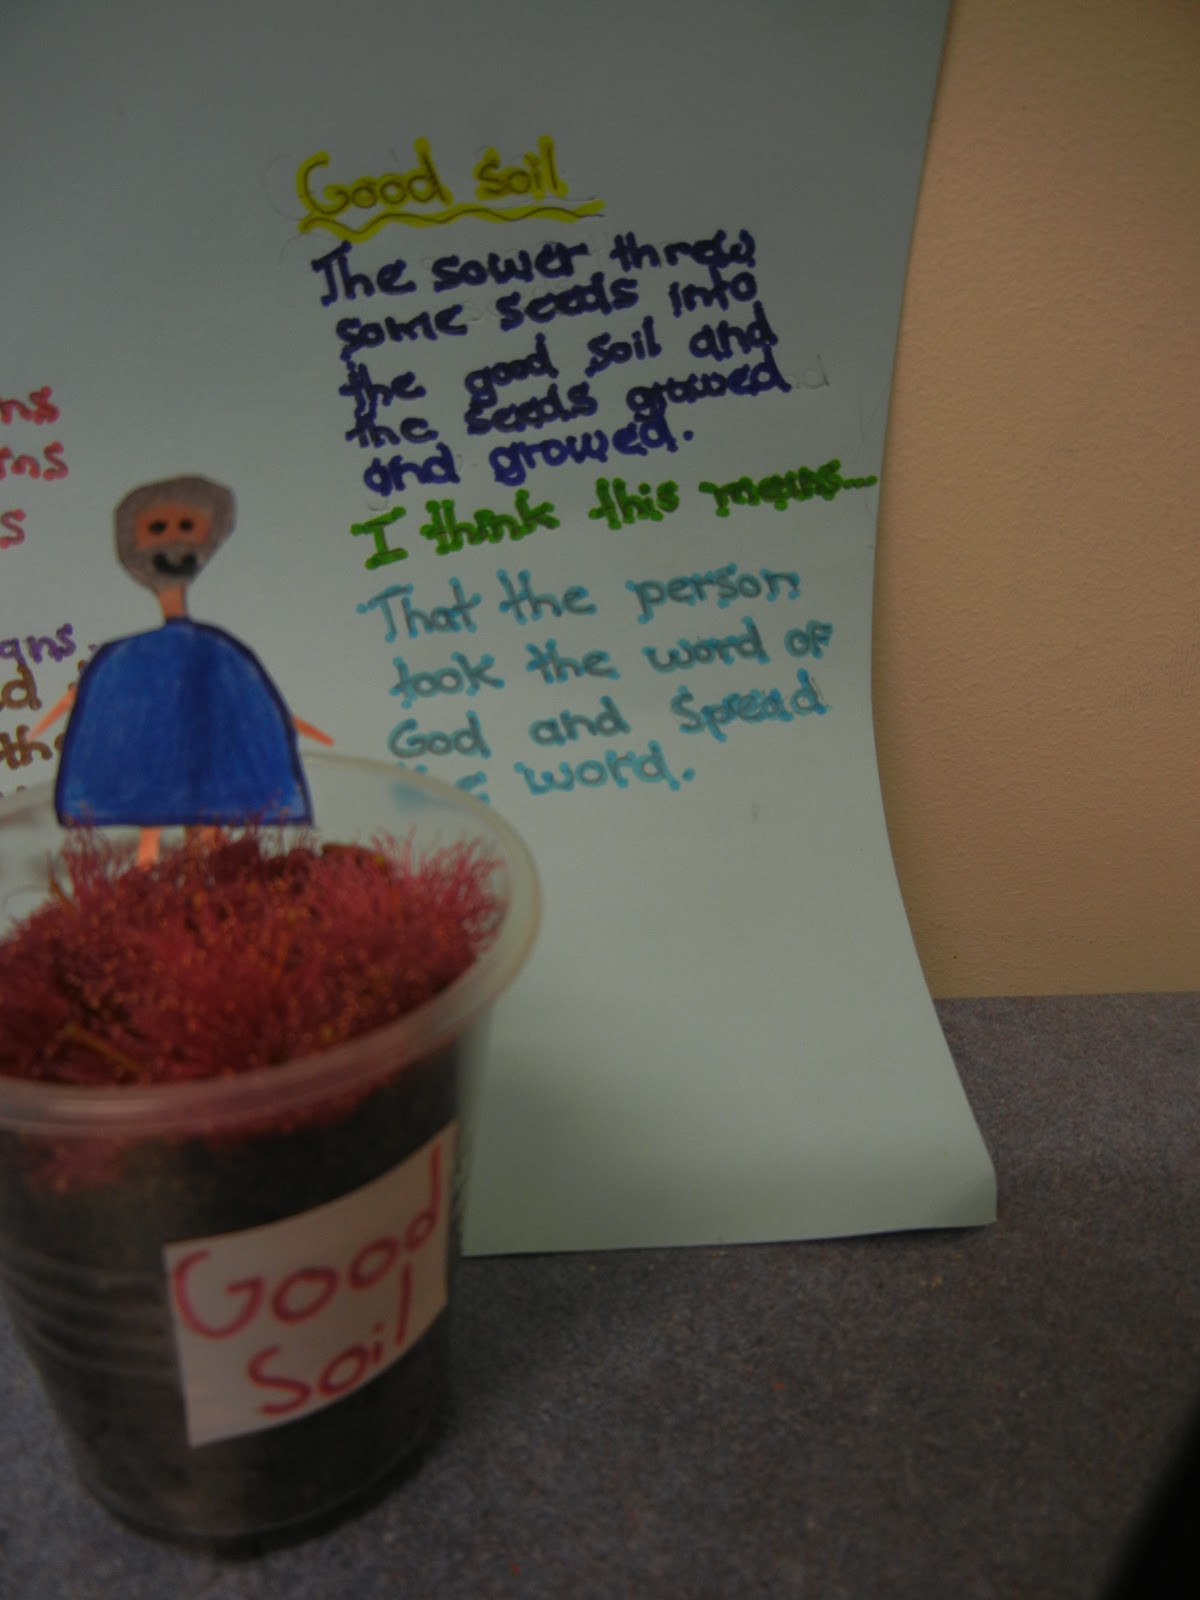 Good Soil
The sower threw
some seeds into
the good soil and
the seeds growed
and growed.
I think this means...
That the person
took the word of
God and spread
the word.
Good
Soil